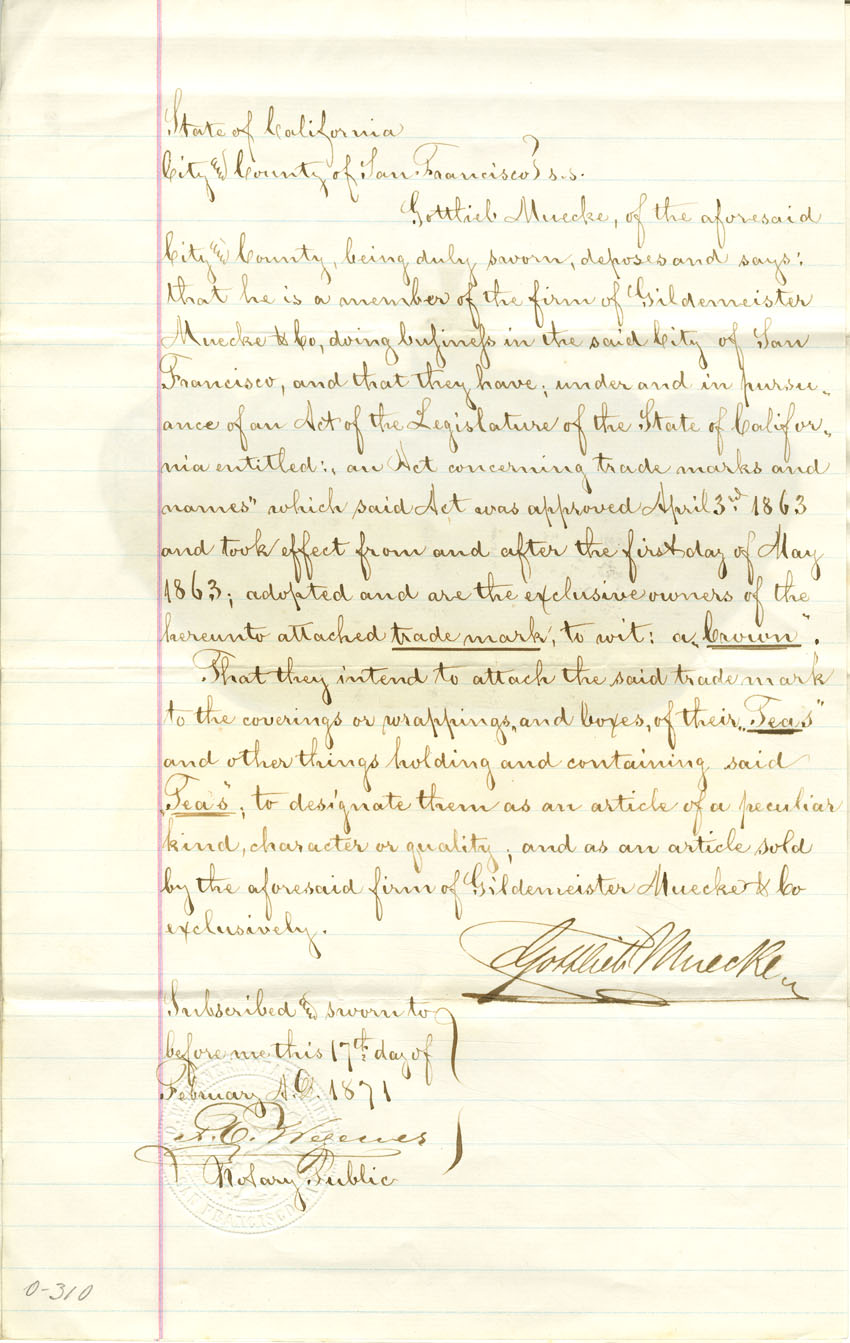 State of California
City and County of San Francisco } s.s.
Gottlieb Muecke, of the aforesaid
City and County, being duly sworn, deposes and says:
that he is a member of the firm of Gildemeister
Muecke & Co, doing business in the said City of San
Francisco, and that they have; under and in pursu„
ance of an Act of the Legislature of the State of Califor„
nia entitled: „an Act concerning trade marks and
names" which said Act was approved April 3rd 1863
and took effect from and after the first day of May
1863; adopted and are the exclusive owners of the
hereunto attached trade mark, to wit: a „Crown".
That they intend to attach the said trade mark
to the coverings or wrappings, and boxes, of their „Teas"
and other things holding and containing said
„Teas"; to designate them as an article of a peculiar
kind, character or quality; and as an article sold
by the aforesaid firm of Gildemeister Muecke & Co
exclusively.
Gottlieb Muecke
Subscribed and sworn to
before me this 17th day of
February A.D. 1871
Notary Public
0-310